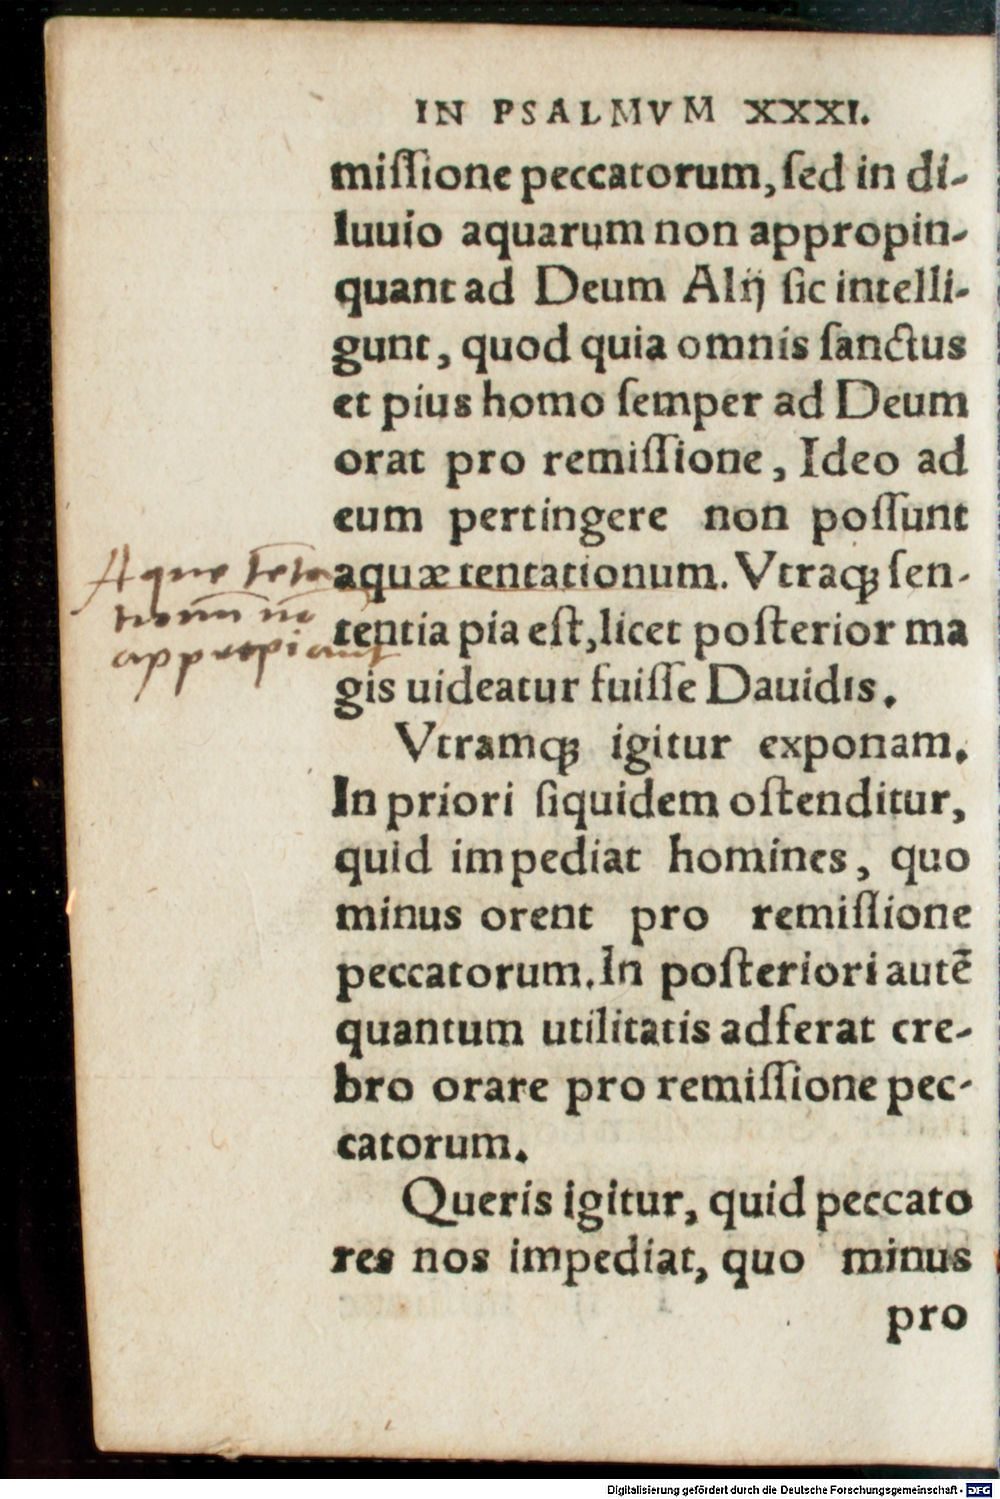 IN PSALMVM XXXI.
miſſione peccatorum, ſed in di-
luuio aquarum non appropin-
quant ad Deum Alij ſic intelli-
gunt, quod quia omnis ſanctus
et pius homo ſemper ad Deum
orat pro remiſſione, Ideo ad
eum pertingere non poſſunt
aquæ tentationum. Vtraqꝫ ſen-
tentia pia eſt, licet poſterior ma
gis uideatur fuiſſe Dauidis.
Aque tēta
tionū nō
appropiant
Vtramqꝫ igitur exponam.
In priori ſiquidem oſtenditur,
quid impediat homines, quo
minus orent pro remiſſione
peccatorum. In poſteriori autē
quantum utilitatis adferat cre-
bro orare pro remiſſione pec-
catorum.
Queris igitur, quid peccato
res nos impediat, quo minus
pro
Digitalisierung gefördert durch die Deutsche Forschungsgemeinschaft - DFG